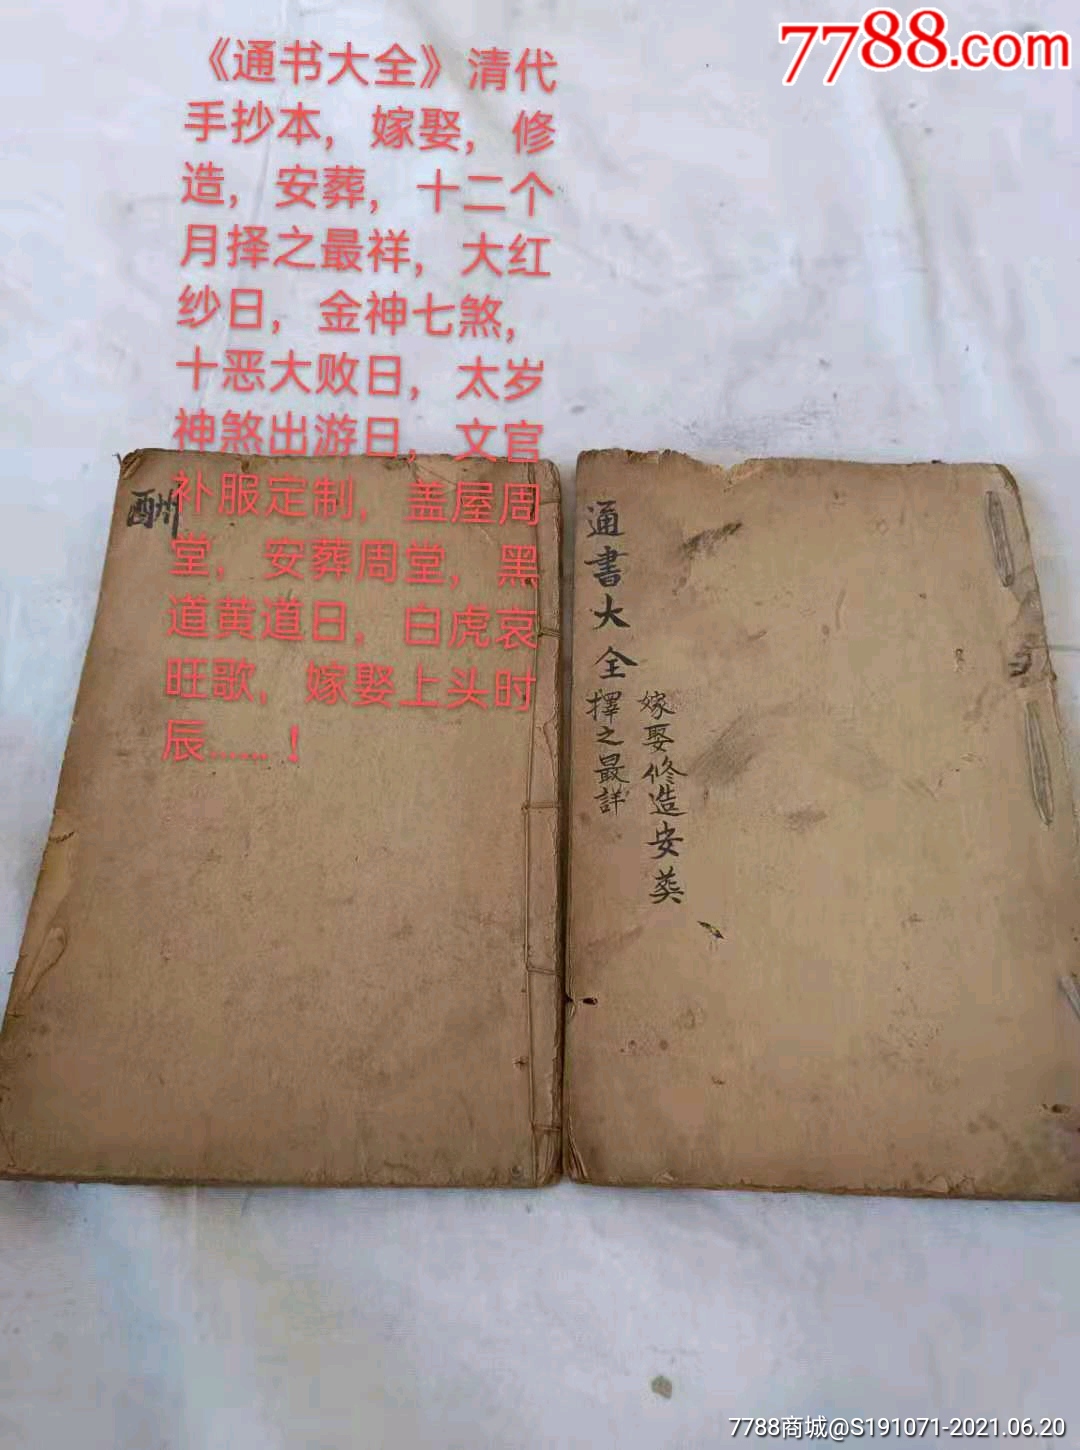 7788.com
《通书大全》清代
手抄本，嫁娶，修
造，安葬，十二个
月择之最祥，大红
纱日，金神七煞，
十恶大败日，太岁
神煞出游日，文官
补服定制，盖屋周
堂，安葬周堂，黑
道黄道日，白虎哀
旺歌，嫁娶上头时
辰......！
酬
通書大全
嫁娶修造安葬
擇之最詳
7788商城@S191071-2021.06.20